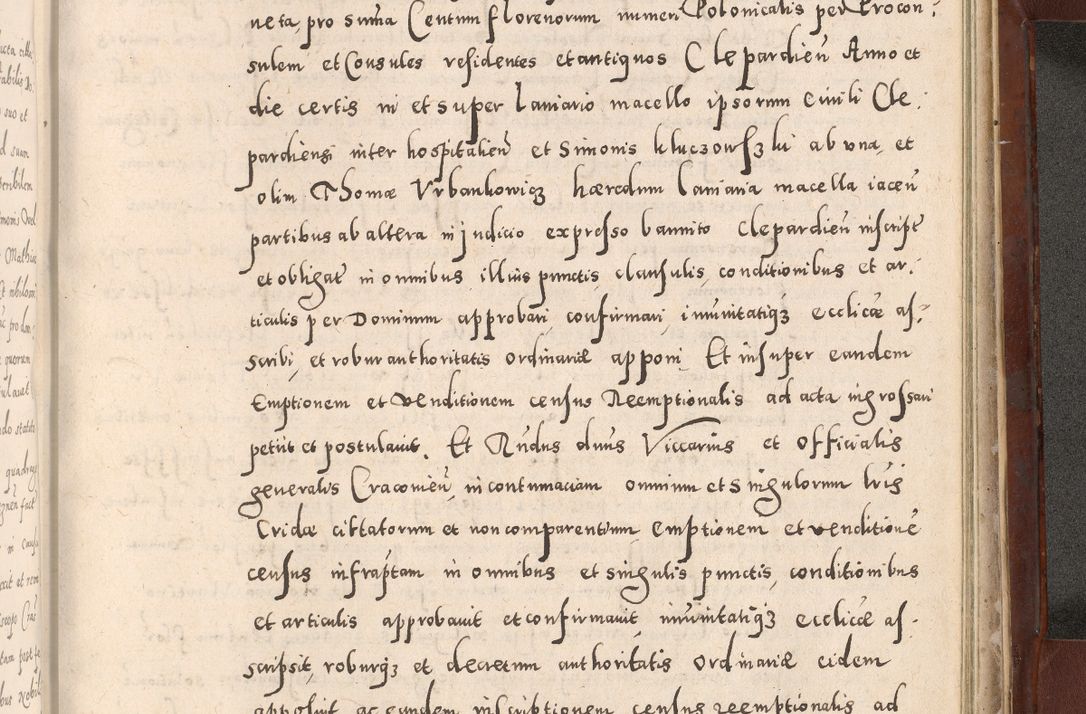 neta, pro summa Centum florenorum numeri Polonicalis per Procon:
sulem et Consules residentes et antiquos Clepardień Anno et
die certis in et super laniario macello ipsorum Civili Cle:
pardiensi inter hospitalień et Simonis Kluczowskj ab una, et
olim Thomæ Vrbankowicz hæredum laniaria macella iaceń
partibus ab altera in judicio expresso bannito Clepardień inscript
et obligat in omnibus illius punctis, clausulis, conditionibus et ar:
ticulis per Dominum approbari, confirmari, immunitatiq3 ecclicæ as:
scribi, et robur authoritatis ordinariæ apponi. Et insuper eandem
Emptionem et venditionem census Reemptionalis ad acta ingrossari
petiit et postulavit. Et Rńdus dnus Viccarius et officialis
generalis Cracovień, in contumaciam omnium et singulorum lris
Cridæ cittatorum et non comparentium, emptionem et venditionē
census infraptam in omnibus et singulis punctis, conditionibus
et articulis approbavit et confirmavit, immunitatiq3 ecclicæ as:
scripsit, roburq3 et decretum authoritatis ordinariæ eidem
apposuit ac eandem inscriptionem census reemptionalis ad